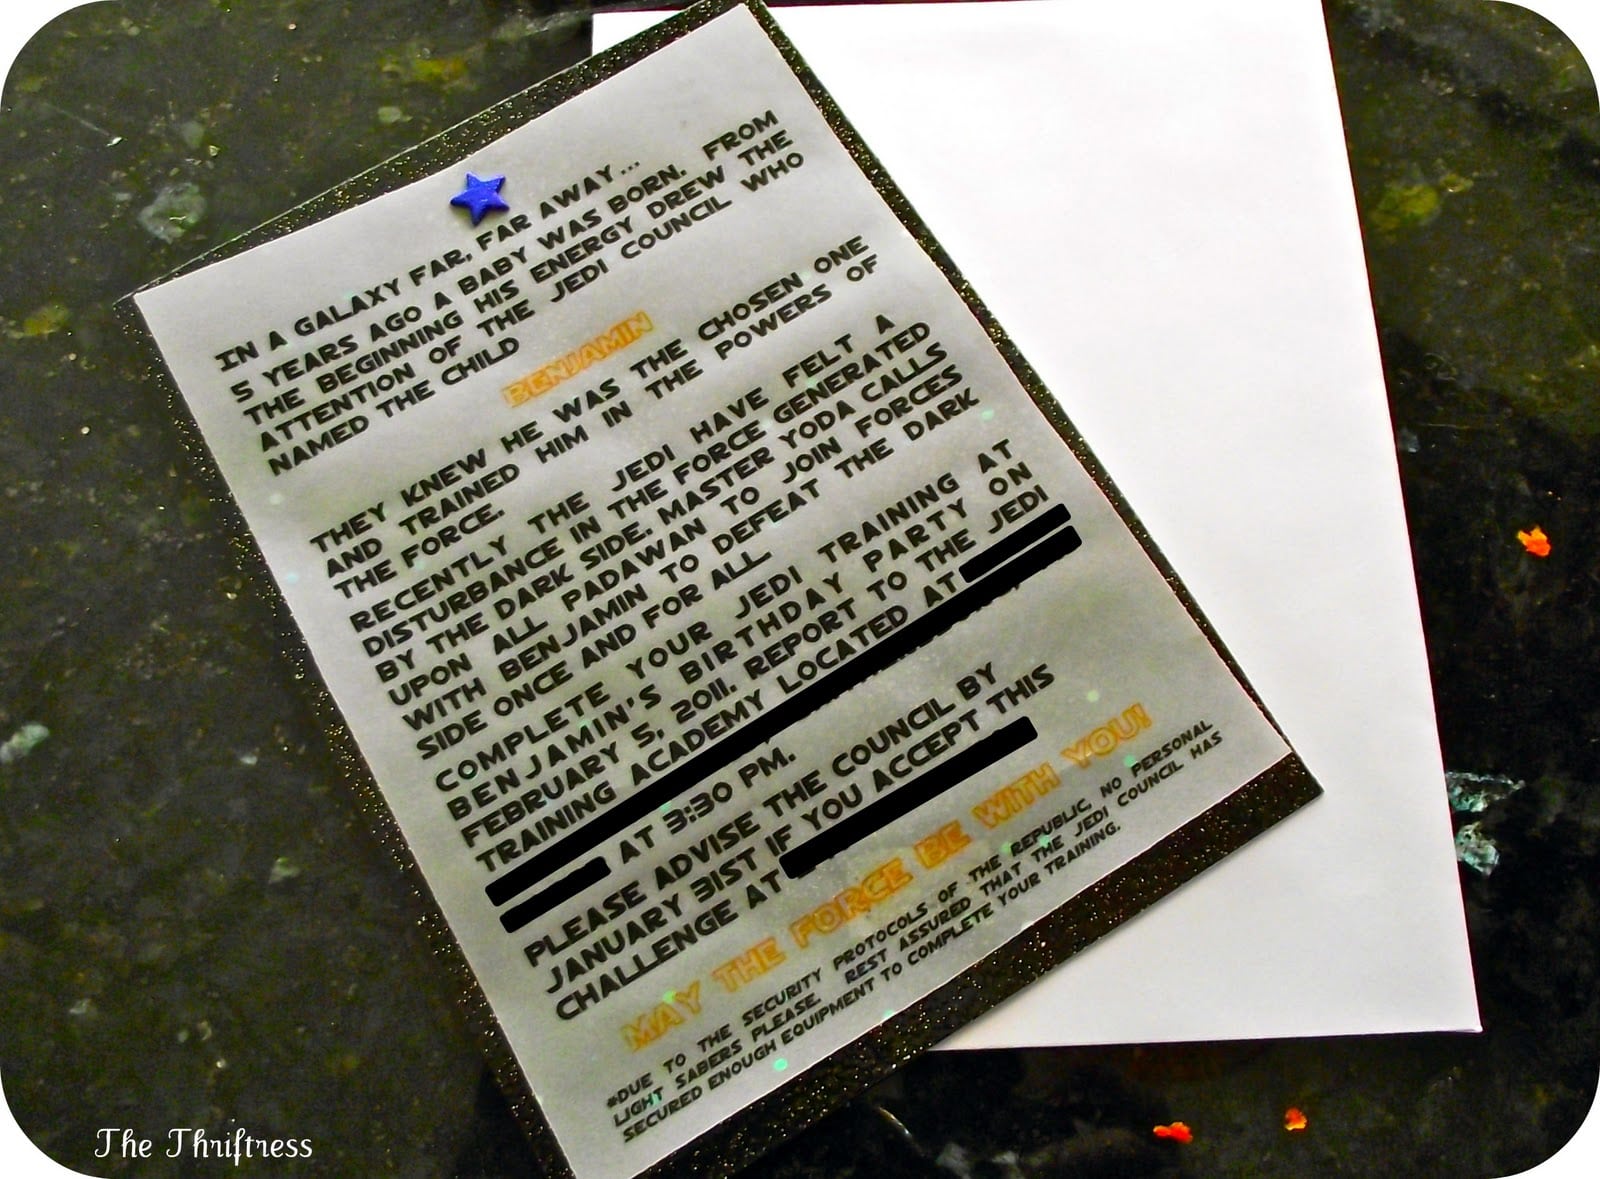 IN A GALAXY FAR, FAR AWAY...
5 YEARS AGO A BABY WAS BORN. FROM
THE BEGINNING HIS ENERGY DREW THE
ATTENTION OF THE JEDI COUNCIL WHO
NAMED THE CHILD
BENJAMIN
THEY KNEW HE WAS THE CHOSEN ONE
AND TRAINED HIM IN THE POWERS OF
THE FORCE.
RECENTLY THE JEDI HAVE FELT A
DISTURBANCE IN THE FORCE GENERATED
BY THE DARK SIDE. MASTER YODA CALLS
UPON ALL PADAWAN TO JOIN FORCES
WITH BENJAMIN TO DEFEAT THE DARK
SIDE ONCE AND FOR ALL
COMPLETE YOUR JEDI TRAINING AT
BENJAMIN'S BIRTHDAY PARTY ON
FEBRUARY 5, 2011. REPORT TO THE JEDI
TRAINING ACADEMY LOCATED AT
AT 3:30 PM.
PLEASE ADVISE THE COUNCIL BY
JANUARY 31ST IF YOU ACCEPT THIS
CHALLENGE AT
MAY THE FORCE BE WITH YOU!
*DUE TO THE SECURITY PROTOCOLS OF THE REPUBLIC, NO PERSONAL
LIGHT SABERS PLEASE. REST ASSURED THAT THE JEDI COUNCIL HAS
SECURED ENOUGH EQUIPMENT TO COMPLETE YOUR TRAINING.
The Thriftress